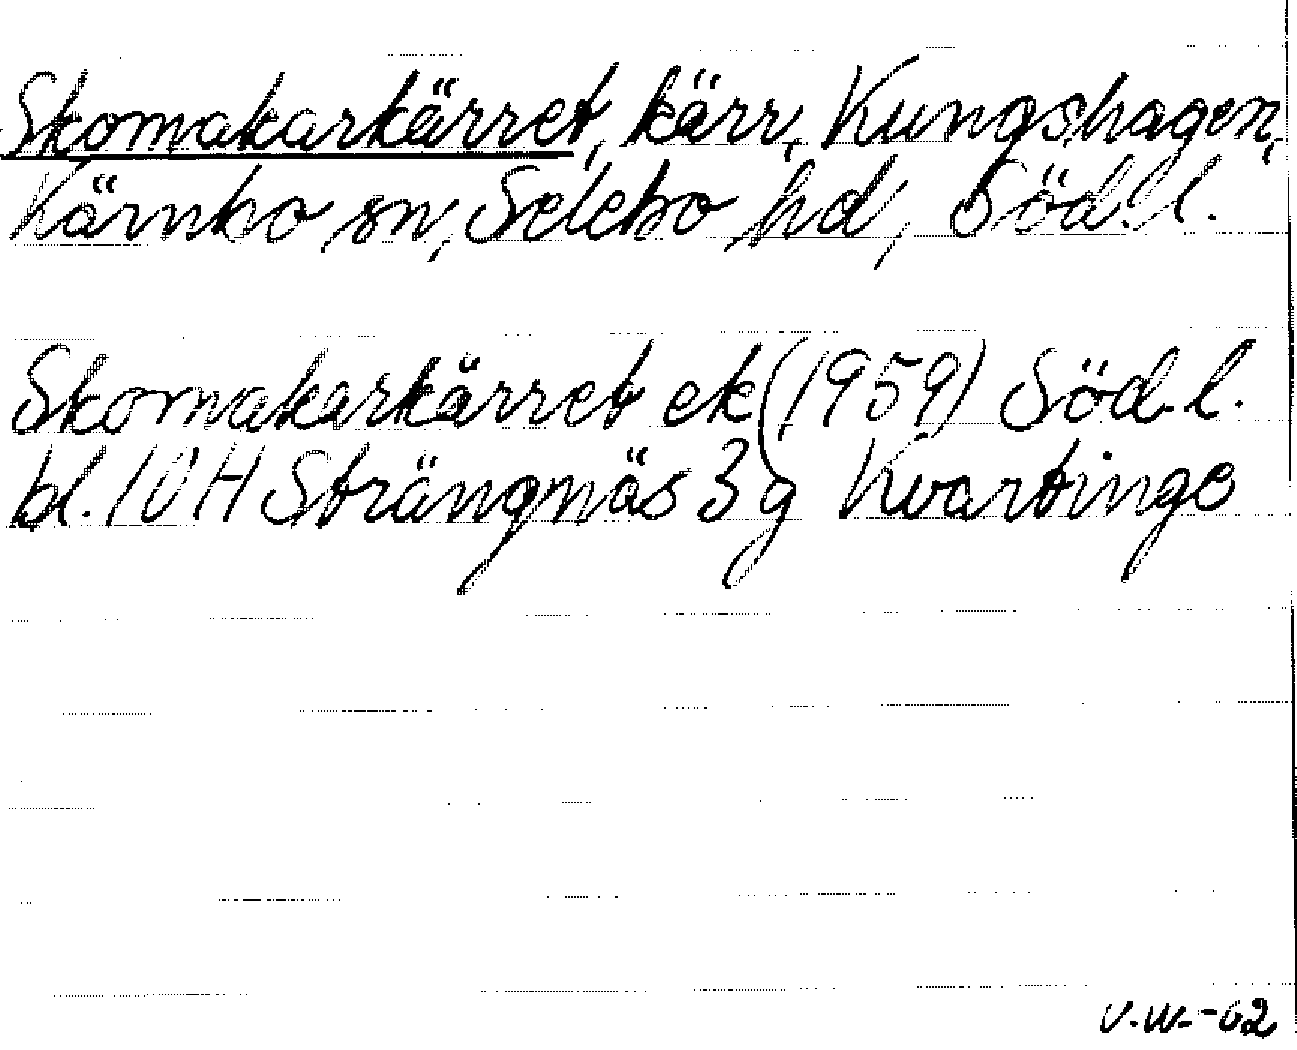 Skomakarkärret, kärr, Kungshagen,
Kärnbo sn, Selebo hd, Söd.l.
Skomakarkärret ek (1959) Söd.l.
bl. 10H Strängnäs 3g Kvartinge
V.W.-62